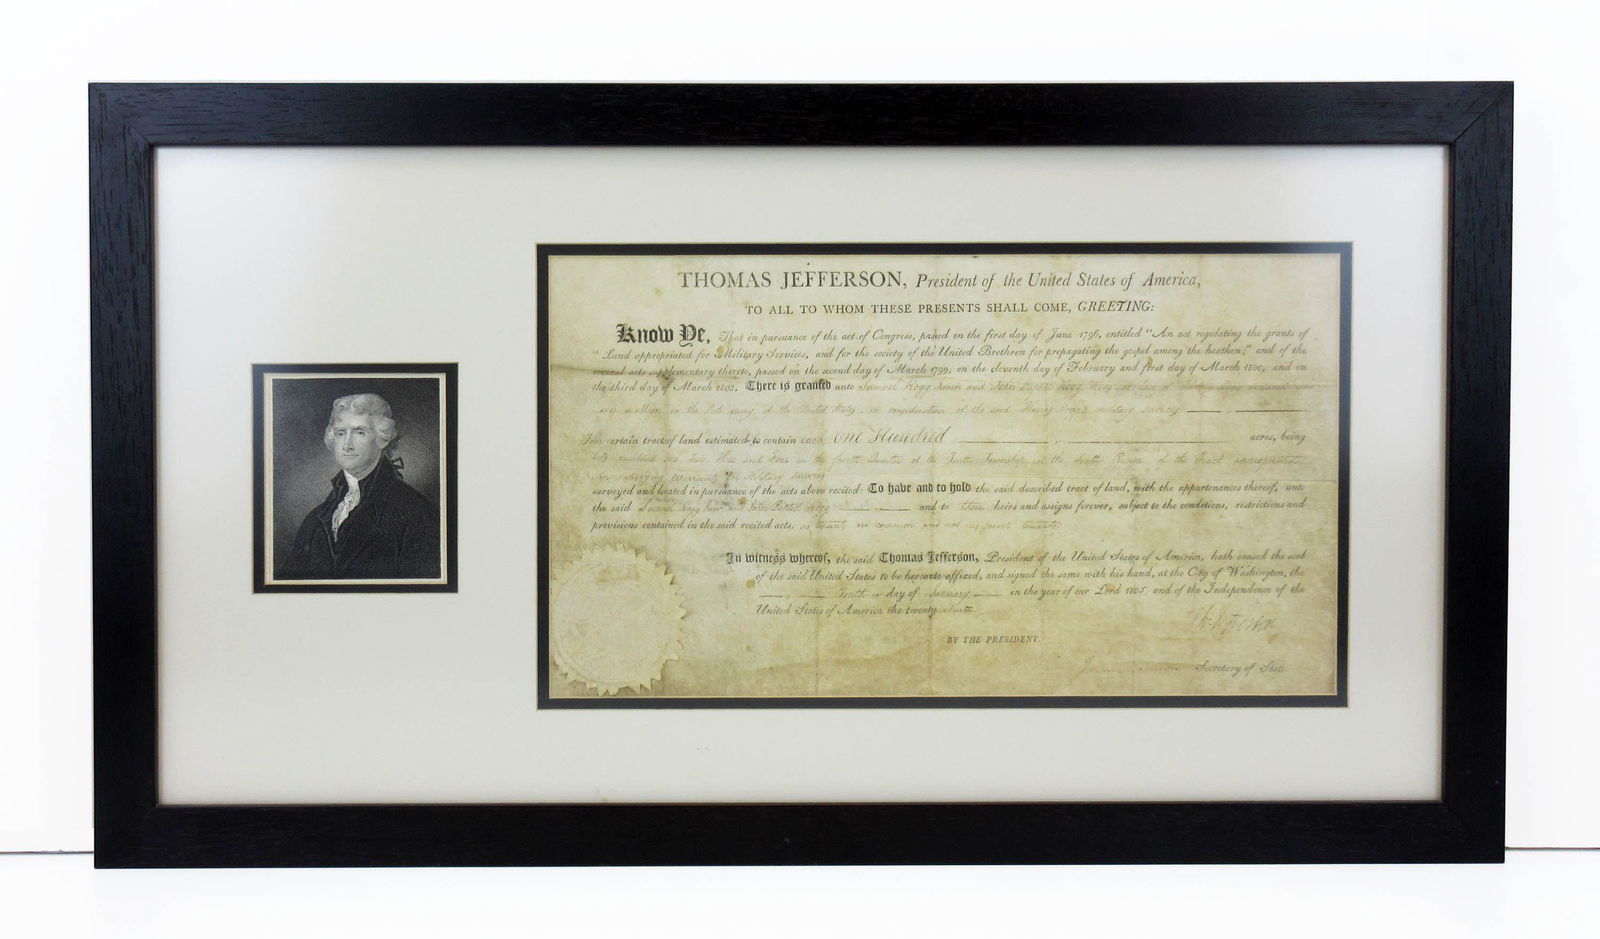 THOMAS JEFFERSON, President of the United States of America,
TO ALL TO WHOM THESE PRESENTS SHALL COME, GREETING:
Know Ye, That in pursuance of the act of Congress, passed on the first day of June 1796, entitled "An act regulating the grants of
"Land appropriated for Military Services, and for the society of the United Brethren for propagating the gospel among the heathen;" and of the
several acts supplementary thereto, passed on the second day of March 1799, on the eleventh day of February and first day of March 1800, and on
the third day of March 1803, There is granted unto Samuel Hogg and John
in the late army of the United States, in consideration of the said Thomas military services
certain tracts of land estimated to contain each, one Hundred acres, being
Lots numbered one, Two Three and Four in the fourth Quarter of the Tenth Township in the Range of the Tract appropriated
Warrants for Military Services
surveyed and located in pursuance of the acts above recited: To have and to hold the said described tract of land, with the appurtenances thereof, unto
the said Samuel Hogg and John Hogg and to their heirs and assigns forever, subject to the conditions, restrictions and
provisions contained in the said recited acts, as tenants in common and not as joint tenants
In witness whereof, the said Thomas Jefferson, President of the United States of America, hath caused the seal
of the said United States to be hereunto affixed, and signed the same with his hand, at the City of Washington, the
day of January in the year of our Lord 1805, and of the Independence of the
United States of America the twenty ninth
Th: Jefferson
BY THE PRESIDENT.
James Madison Secretary of State